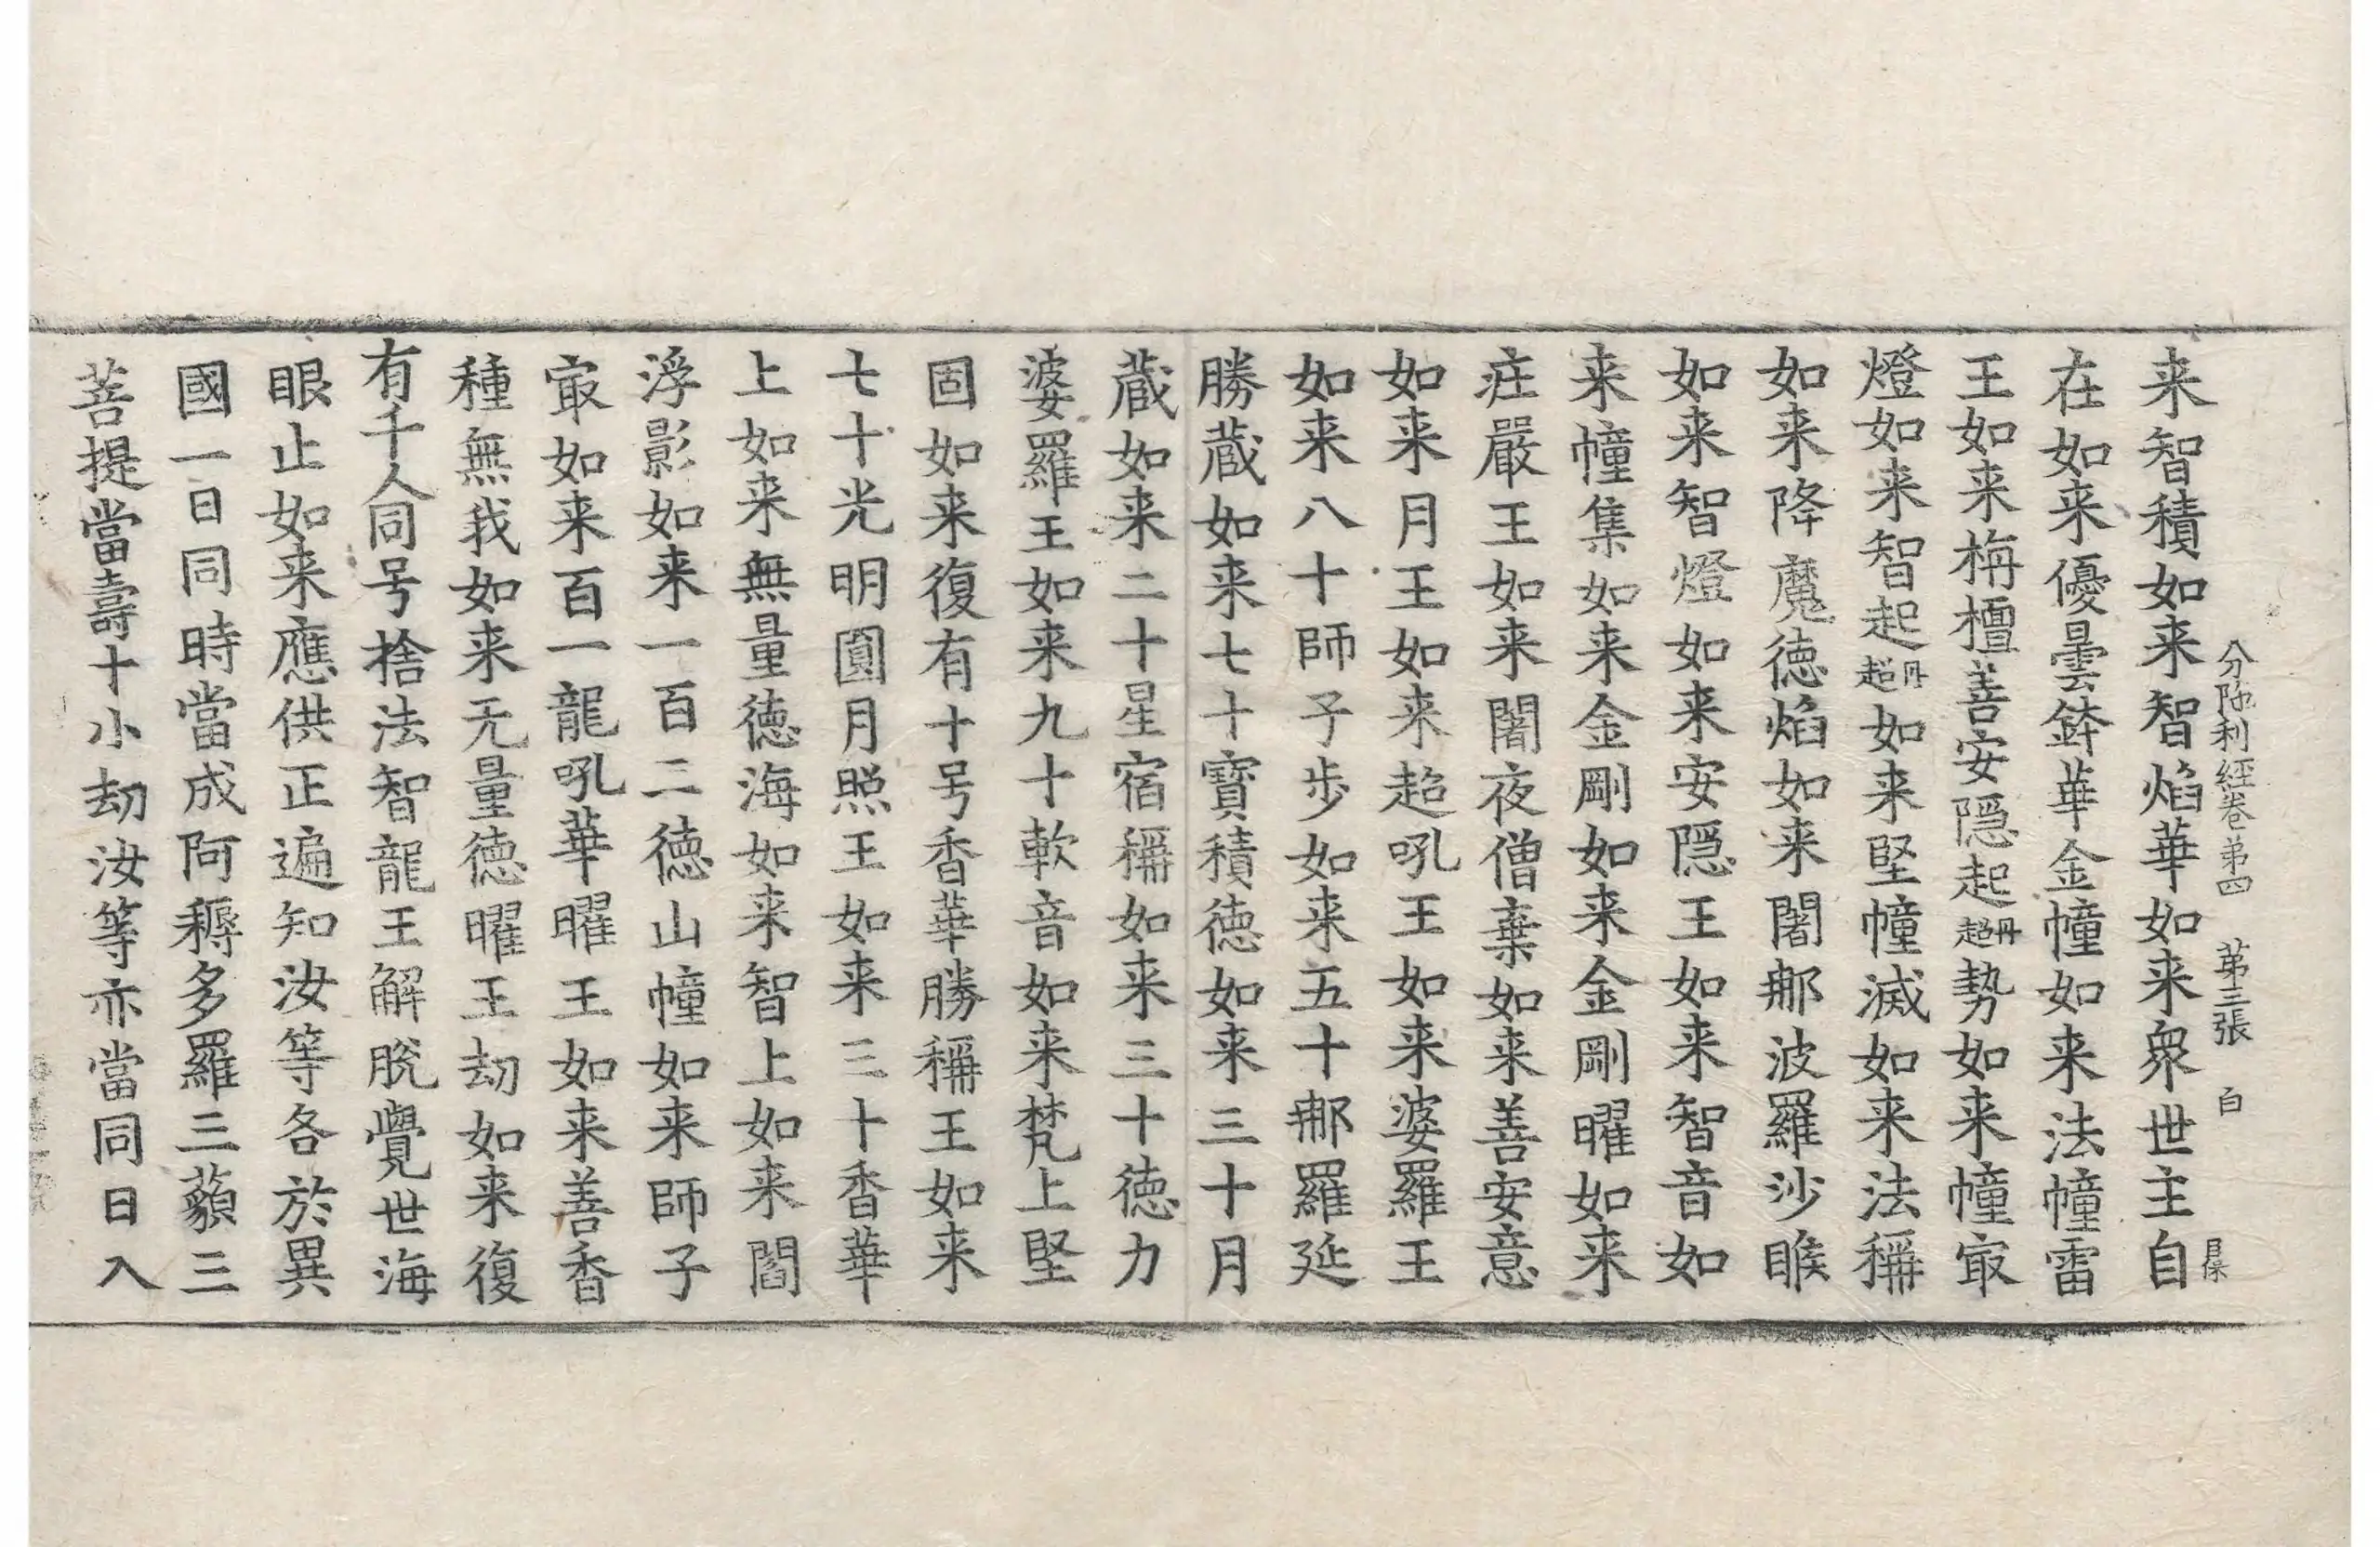 分陁利経卷第四 第三張 白
来智積如来智焰華如来衆世主自
在如来優曇鉢華金幢如来法幢雷
王如来栴檀善安隠起丹超勢如来幢㝡
燈如来智起丹超如来堅幢滅如来法稱
如来降魔徳焰如来闍郍波羅沙睺
如来智燈如来安隠王如来智音如
来幢集如来金剛如来金剛曜如来
㽵嚴王如来闍夜僧棄如来善安意
如来月王如来超吼王如来婆羅王
如来八十師子步如来五十郍羅延
勝蔵如来七十寶積徳如来三十月
蔵如来二十星宿稱如来三十徳力
婆羅王如来九十軟音如来梵上堅
固如来復有十号香華勝稱王如来
七十光明圓月照王如来三十香華
上如来無量徳海如来智上如来閻
浮影如来一百二徳山幢如来師子
㝡如来百一龍吼華曜王如来善香
種無我如来无量徳曜王劫如来復
有千人同号捨法智龍王解脱覺世海
眼止如来應供正遍知汝等各於異
國一日同時當成阿耨多羅三藐三
菩提當壽十小劫汝等亦當同日入